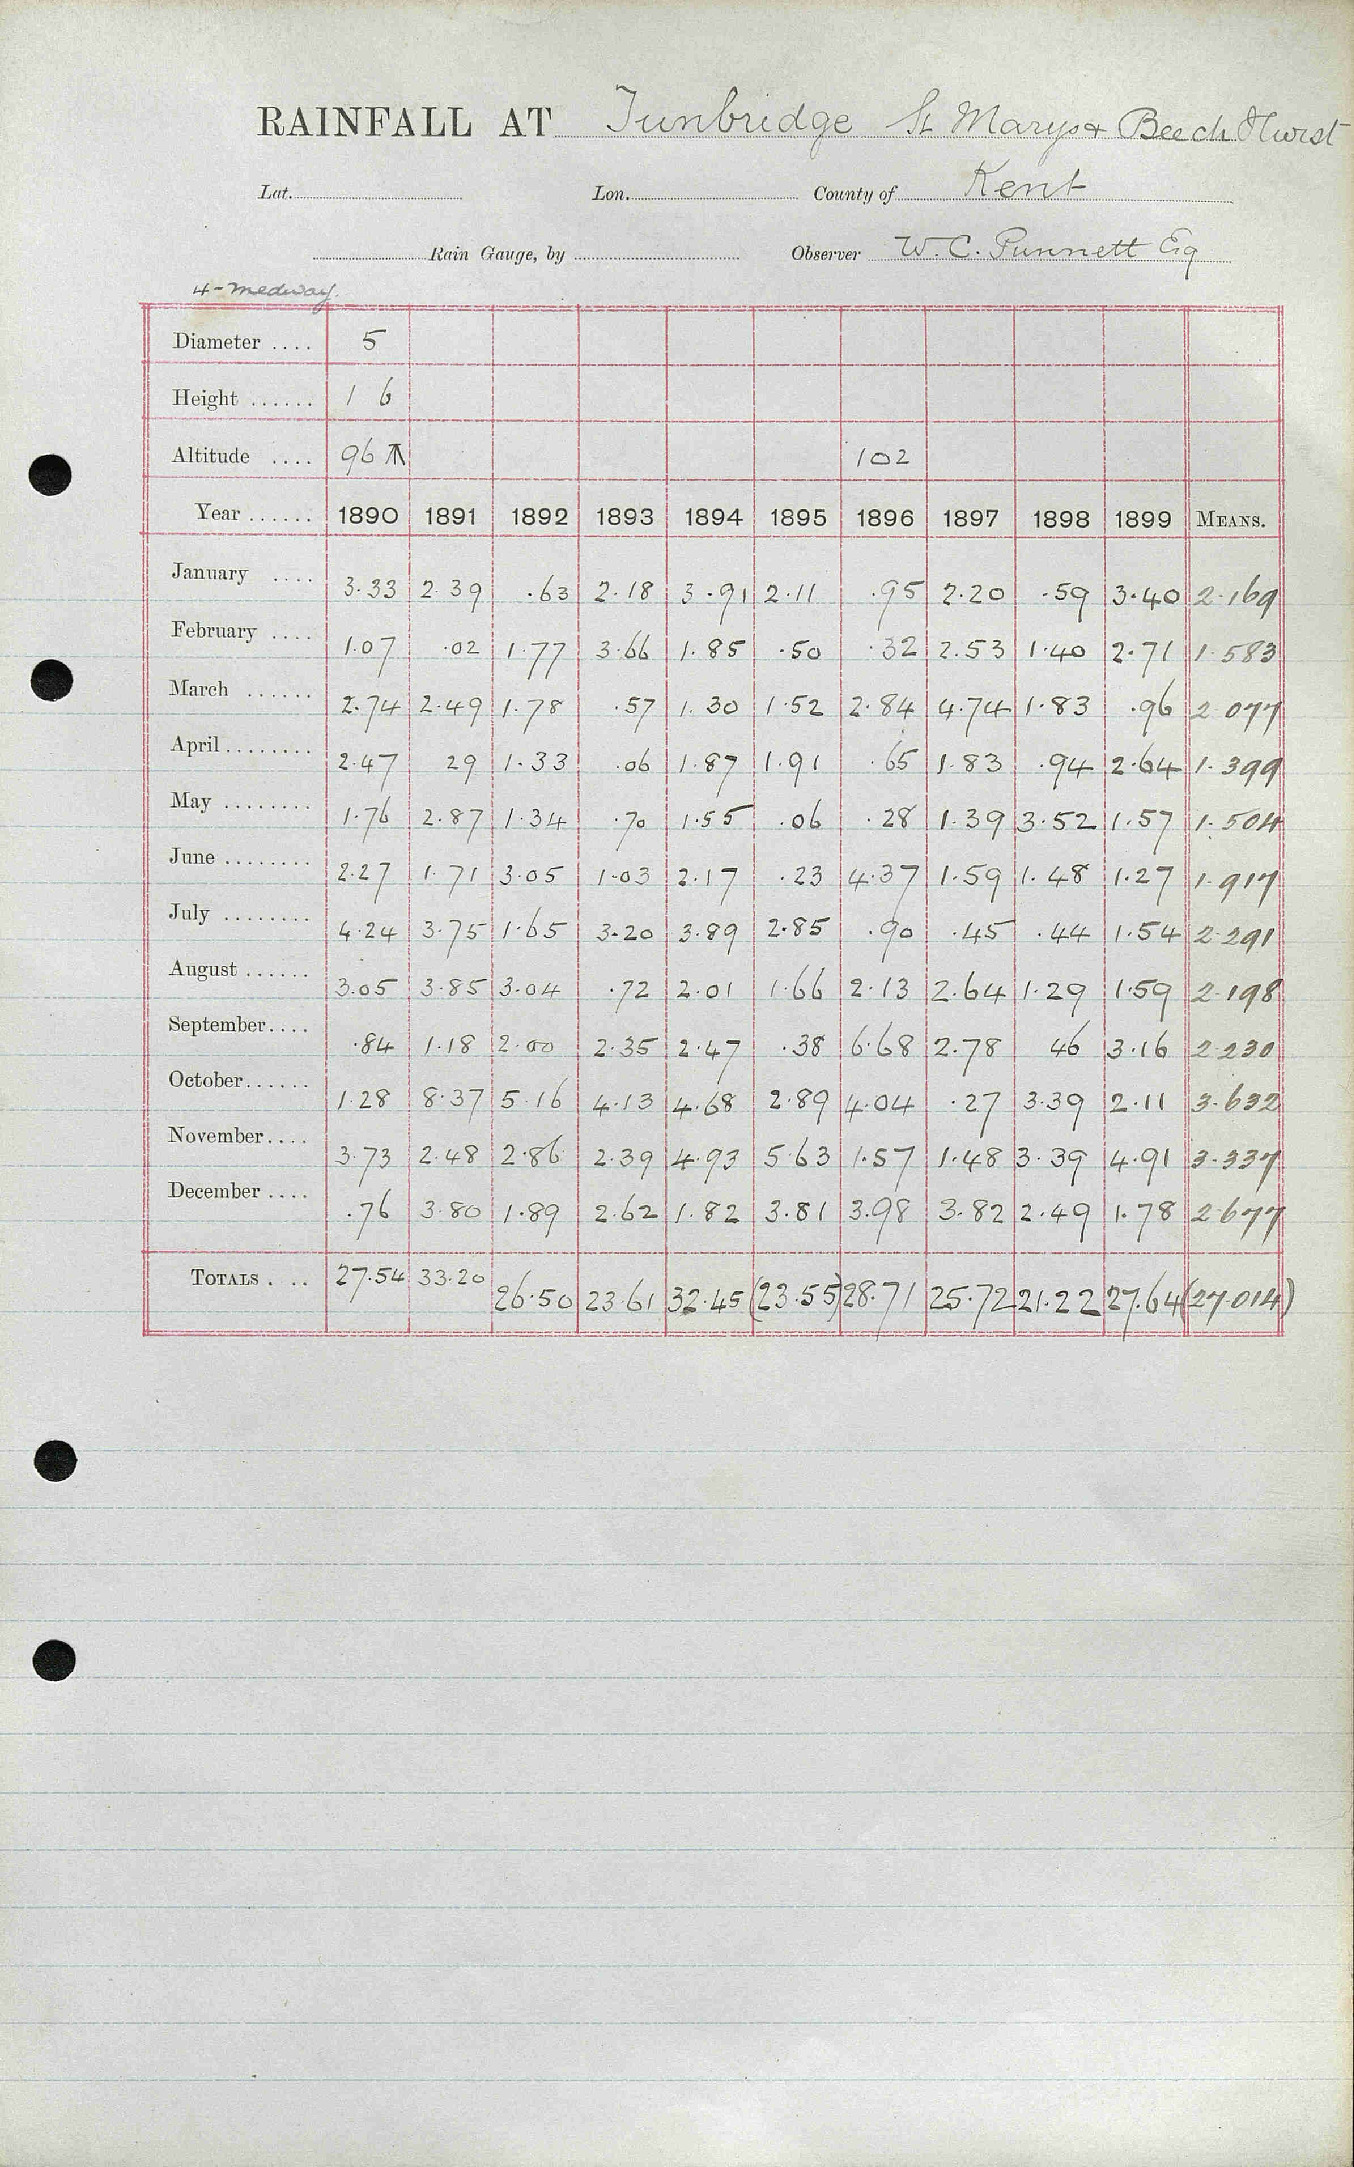 RAINFALL AT Tunbridge St Marys & Beech Hurst
Lat. Lon. County of Kent
Rain Gauge, by Observer W. C. Punnett Esq
4 - Medway.
Diameter .... 5
Height ...... 1 6
Altitude .... 96 102
Year ...... 1890 1891 1892 1893 1894 1895 1896 1897 1898 1899 MEANS.
January .... 3.33 2 39 .63 2.18 3.91 2.11 .95 2.20 .59 3.40 2.169
February .... 1.07 .02 1.77 3.66 1.85 .50 .32 2.53 1.40 2.71 1.583
March ...... 2.74 2.49 1.78 .57 1.30 1.52 2.84 4.74 1.83 .96 2.077
April ........ 2.47 29 1.33 .06 1.87 1.91 .65 1.83 .94 2.64 1.399
May ........ 1.76 2.87 1.34 .70 1.55 .06 .28 1.39 3.52 1.57 1.504
June ........ 2.27 1.71 3.05 1.03 2.17 .23 4.37 1.59 1.48 1.27 1.917
July ........ 4.24 3.75 1.65 3.20 3.89 2.85 .90 .45 .44 1.54 2.291
August ...... 3.05 3.85 3.04 .72 2.01 1.66 2.13 2.64 1.29 1.59 2.198
September .... .84 1.18 2.00 2.35 2.47 .38 6.68 2.78 46 3.16 2.230
October ...... 1.28 8.37 5.16 4.13 4.68 2.89 4.04 .27 3.39 2.11 3.632
November .... 3.73 2.48 2.86 2.39 4.93 5.63 1.57 1.48 3.39 4.91 3.337
December .... .76 3.80 1.89 2.62 1.82 3.81 3.98 3.82 2.49 1.78 2.677
TOTALS . .. 27.54 33.20 26.50 23.61 32.45 (23.55) 28.71 25.72 21.22 27.64 (27.014)